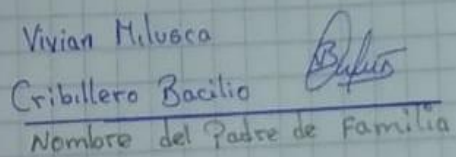 Vivian Milusca
Cribillero Bacilio
Nombre del Padre de Familia